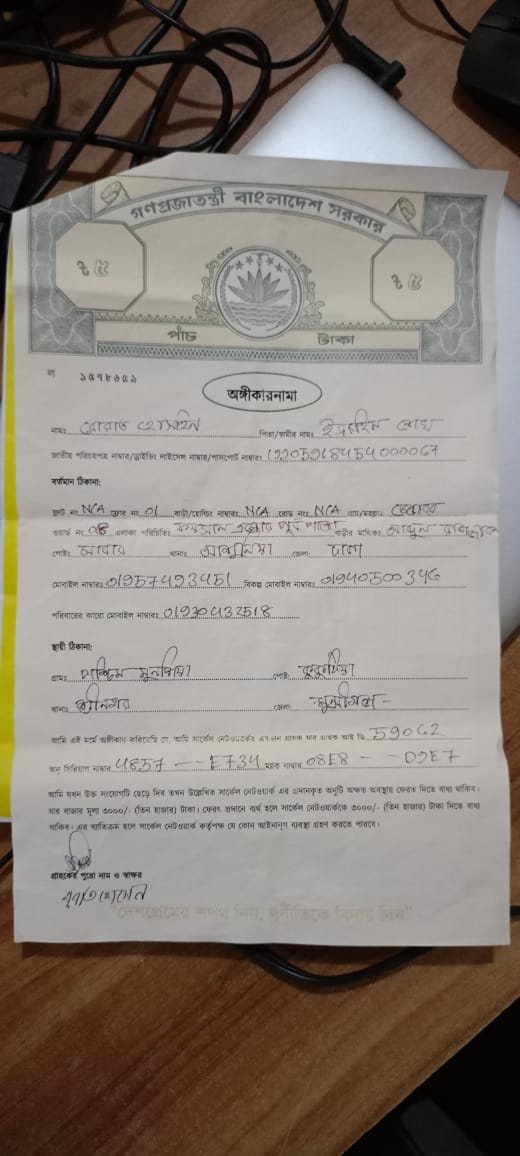 গণপ্রজাতন্ত্রী বাংলাদেশ সরকার
৳ ৫ ৳ ৫
পাঁচ টাকা
অঙ্গীকারনামা
নামঃ হোসাইন পিতা/স্বামীর নামঃ ইব্রাহিম শেখ
জাতীয় পরিচয়পত্র নাম্বার/ড্রাইভিং লাইসেন্স নাম্বার/পাসপোর্ট নাম্বারঃ
বর্তমান ঠিকানা:
ফ্লাট নং N/A ফ্লোর নং 01 বাড়ী/হোল্ডিং নাম্বারঃ N/A রোড নংঃ N/A গ্রাম/মহল্লাঃ
ওয়ার্ড নং 08 এলাকা পরিচিতিঃ পূর্ব পাশে বাড়ীর মালিকঃ আব্দুল
পোষ্টঃ থানাঃ আশুলিয়া জেলাঃ ঢাকা
মোবাইল নাম্বারঃ 01957493451 বিকল্প মোবাইল নাম্বারঃ
পরিবারের কারো মোবাইল নাম্বারঃ 01930432518
স্থায়ী ঠিকানা:
গ্রামঃ পশ্চিম পোষ্টঃ
থানাঃ শ্রীনগর জেলাঃ মুন্সীগঞ্জ
আমি এই মর্মে অঙ্গীকার করিতেছি যে, আমি সার্কেল নেটওয়ার্কের একজন গ্রাহক যার গ্রাহক আই ডি
অনু সিরিয়াল নাম্বার 4857 -- E734 ম্যাক নাম্বার 08E8 -- D9E7
আমি যখন উক্ত সংযোগটি ছেড়ে দিব তখন উল্লেখিত সার্কেল নেটওয়ার্ক এর প্রদানকৃত অনুটি অক্ষত অবস্থায় ফেরত দিতে বাধ্য থাকিব।
যার বাজার মূল্য ৩০০০/- (তিন হাজার) টাকা। ফেরৎ প্রদানে ব্যর্থ হলে সার্কেল নেটওয়ার্ককে ৩০০০/- (তিন হাজার) টাকা দিতে বাধ্য
থাকিব। এর ব্যতিক্রম হলে সার্কেল নেটওয়ার্ক কর্তৃপক্ষ যে কোন আইনানুগ ব্যবস্থা গ্রহণ করতে পারবে।
গ্রাহকের পুরো নাম ও স্বাক্ষর
"দেশপ্রেমের শপথ নিন, দুর্নীতিকে বিদায় দিন"